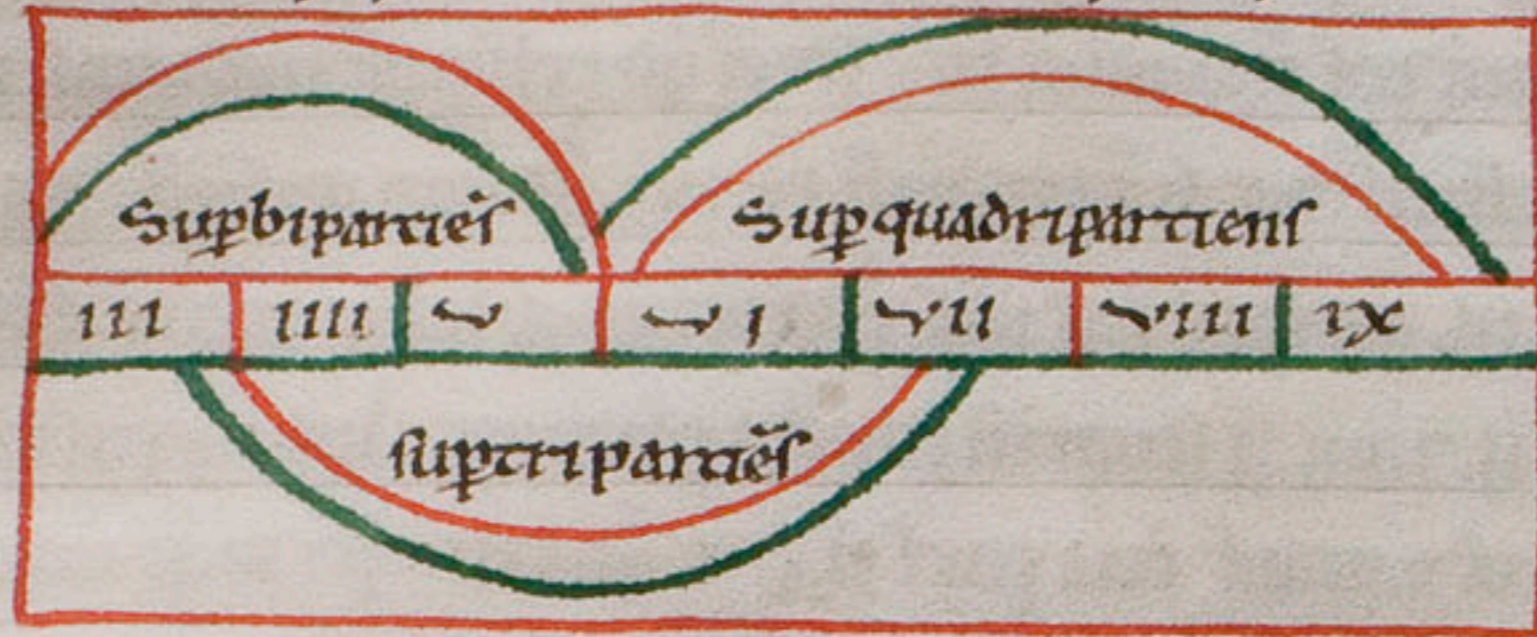 Sup̱bipartiēs Sup̱quadripartiens
III IIII V VI VII VIII IX
sup̱tripartiēs